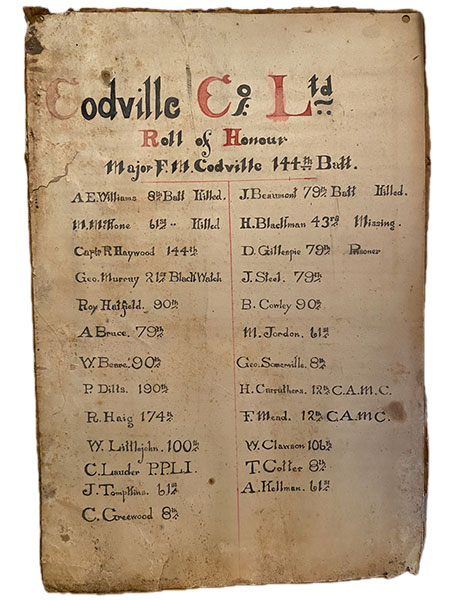 Codville Co. Ltd
Roll of Honour
Major F. M. Codville 144th Batt.
A E. Williams 8th Batt Killed.
M. McKone 61st " Killed
Captn R Haywood 144th
Geo. Murray 21st Black Watch
Roy Hatfield. 90th
A Bruce. 79th
W. Beare. 90th
P. Dilts. 190th
R. Haig 174th
W. Littlejohn. 100th
C. Lauder P.P.L.I.
J. Tompkins. 61st
C. Greewood 8th
J. Beaumont 79th Batt Killed.
H. Blackman 43rd Missing.
D. Gillespie 79th Prisoner
J. Steel. 79th
B. Cowley 90th
M. Jordon. 61st
Geo. Somerville. 8th
H. Carruthers. 12th C.A.M.C.
F. Mead. 12th C.A.M.C.
W. Clawson 106th
T. Cotter 8th
A. Kellman. 61st